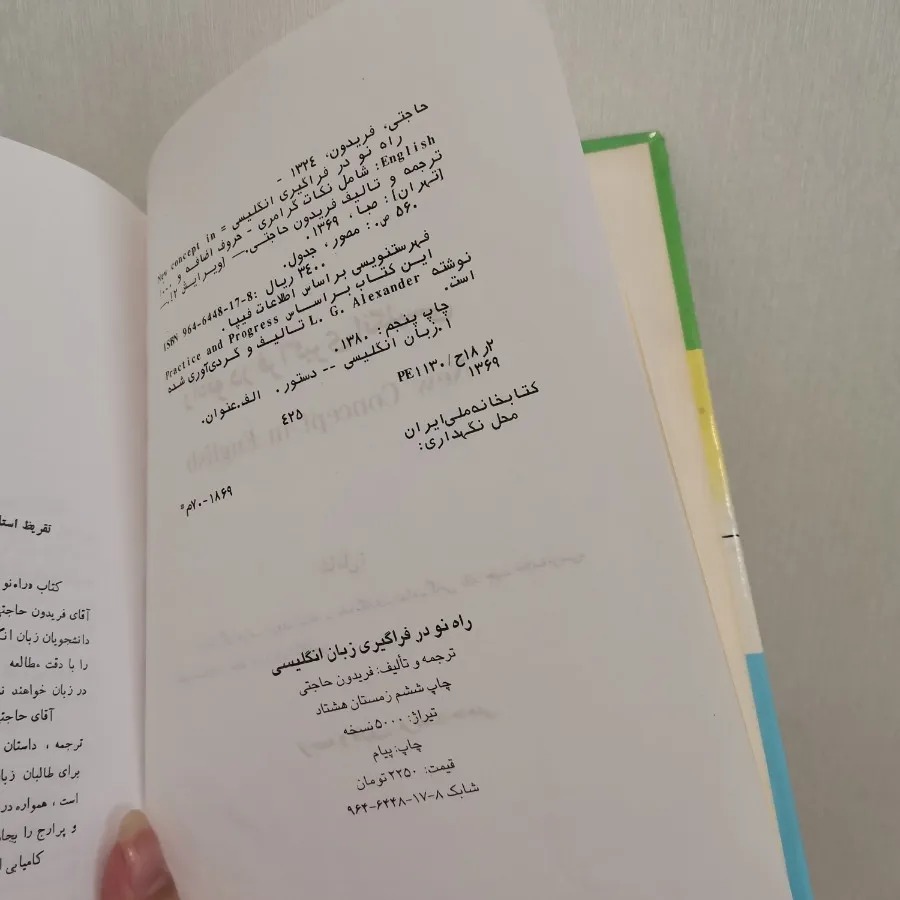 حاجتی، فریدون، ۱۳۲۴ -
راه نو در فراگیری انگلیسی = New concept in
English: شامل نکات گرامری - حروف اضافه و ...
ترجمه و تالیف فریدون حاجتی.— [ویرایش ۲].—
[تهران]: صبا، ۱۳۶۹.
۵۶۰ ص.: مصور، جدول.
ISBN 964-6448-17-8: ۳۴۰۰ ریال
فهرستنویسی براساس اطلاعات فیپا.
این کتاب براساس Practice and Progress
نوشته L. G. Alexander تالیف و گردآوری شده
است.
چاپ پنجم: ۱۳۸۰.
۱.زبان انگلیسی -- دستور. الف.عنوان.
۲ر۱۸ح/PE۱۱۳۰
۱۳۶۹
۴۲۵
کتابخانه ملی ایران
محل نگهداری:
۱۸۶۹-۷۰م
راه نو در فراگیری زبان انگلیسی
ترجمه و تألیف: فریدون حاجتی
چاپ ششم زمستان هشتاد
تیراژ: ۵۰۰۰ نسخه
چاپ: پیام
قیمت: ۲۲۵۰ تومان
شابک ۸-۱۷-۶۴۴۸-۹۶۴
تقریظ
کتاب «راه نو
آقای فریدون
دانشجویان زبان
را با دقت مطالعه
در زبان خواهند
آقای
ترجمه ، داستان
برای طالبان
است ، همواره در
و پرارج را
کامیابی